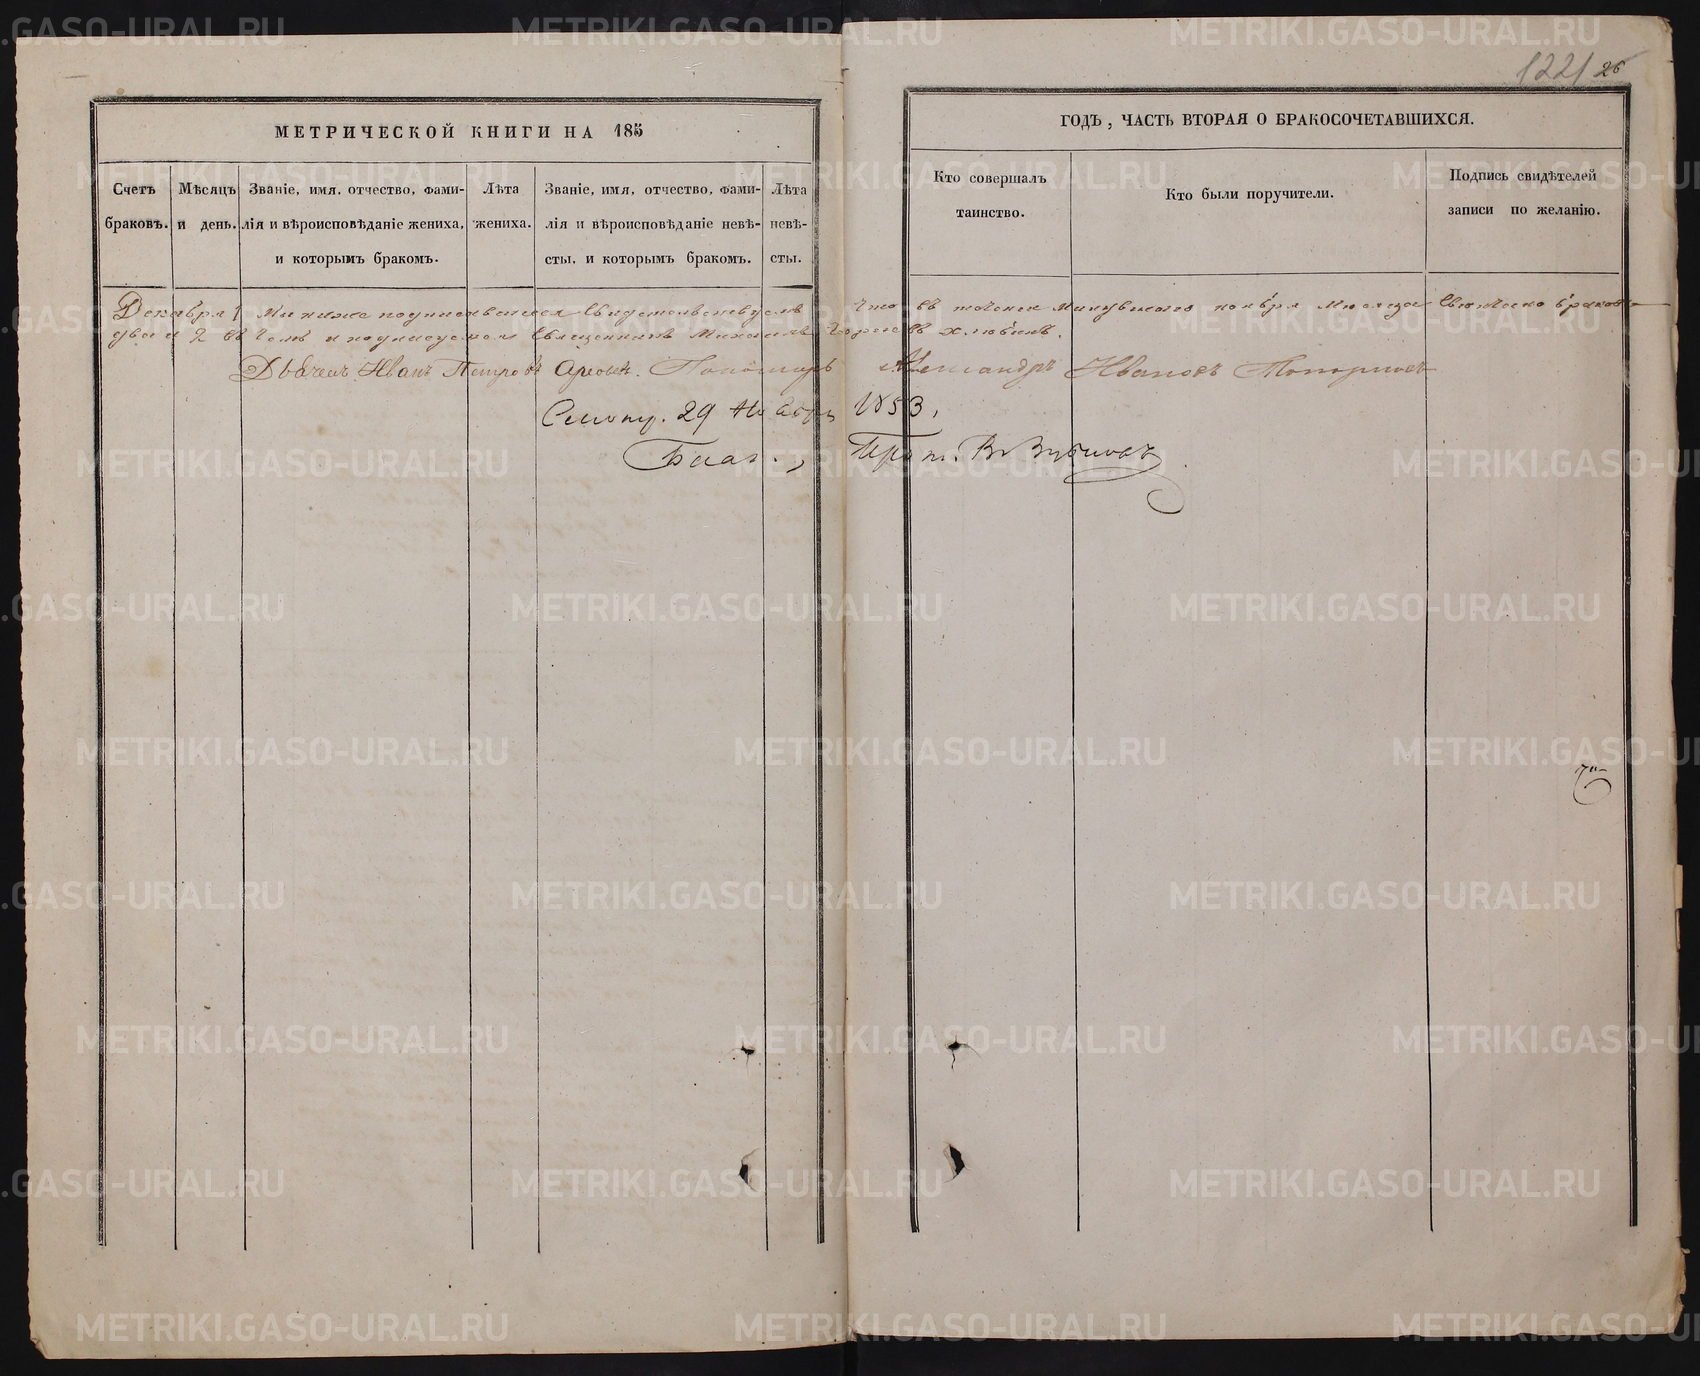 METRIKI.GASO-URAL.RU
1221 26
МЕТРИЧЕСКОЙ КНИГИ НА 185
ГОДЪ, ЧАСТЬ ВТОРАЯ О БРАКОСОЧЕТАВШИХСЯ.
Счетъ браковъ.
Мѣсяцъ и день.
Званіе, имя, отчество, фамилія и вѣроисповѣданіе жениха, и которымъ бракомъ.
Лѣта жениха.
Званіе, имя, отчество, фамилія и вѣроисповѣданіе невѣсты, и которымъ бракомъ.
Лѣта невѣсты.
Кто совершалъ таинство.
Кто были поручители.
Подпись свидѣтелей записи по желанію.
Декабря 1 Мы ниже подписавшіеся свидетельствуемъ что въ ноября месяце браковъ
два 2 въ чемъ и подписуемся Священникъ Михаилъ
Дьячекъ Иванъ Петровъ Пономарь Александръ Ивановъ Топорковъ
29 Ноября 1853,
Благ., Прот.